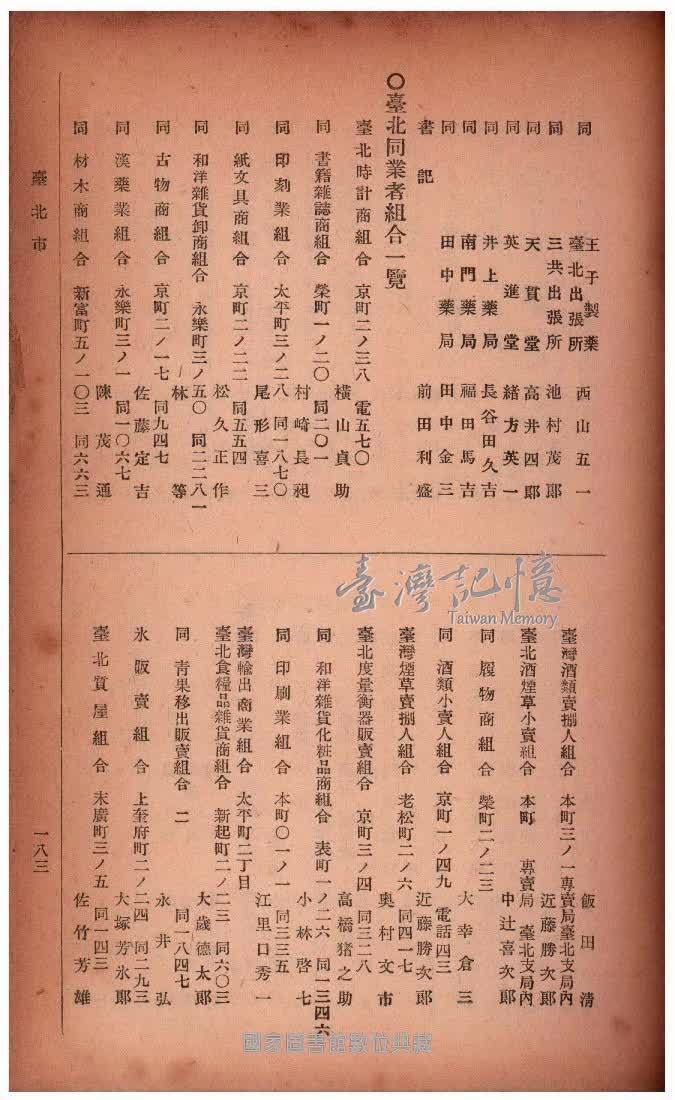 同　王子製藥臺北出張所　西山五一
同　三共出張所　池村茂郎
同　天貫堂　高井四郎
同　英進堂　緒方英一
同　井上藥局　長谷田久吉
同　南門藥局　福田馬吉
同　田中藥局　田中金三
書記　前田利盛
〇臺北同業者組合一覽
臺北時計商組合　京町二ノ三八　電五七〇
橫山貞助
同　書籍雜誌商組合　榮町一ノ二〇　同二〇一
村崎長昶
同　印刻業組合　太平町三ノ二八　同一八七〇
尾形喜三
同　紙文具商組合　京町二ノ二二　同五五四
松久正作
同　和洋雜貨卸商組合　永樂町三ノ五〇　同二二八一
林等
同　古物商組合　京町二ノ一七　同九四七
佐藤定吉
同　漢藥業組合　永樂町三ノ一　同一〇六七
陳茂通
同　材木商組合　新富町五ノ一〇三　同六六三
飯田清
臺灣酒類賣捌人組合　本町三ノ一專賣局臺北支局內
近藤勝次郎
臺北酒煙草小賣組合　本町　專賣局臺北支局內
中辻喜次郎
同　履物商組合　榮町二ノ二三
大幸倉三
同　酒類小賣人組合　京町一ノ四九　電話四三
近藤勝次郎
臺灣煙草賣捌人組合　老松町二ノ六　同四一七
奧村文市
臺北度量衡器販賣組合　京町三ノ四　同三二八
高橋猪之助
同　和洋雜貨化粧品商組合　表町一ノ二六　同一三四六
小林啓七
同　印刷業組合　本町〇一ノ一　同三三五
江里口秀一
臺灣輸出商業組合　太平町二丁目
臺北食糧品雜貨商組合　新起町二ノ二三　同六〇三
大歲德太郎
同　靑果移出販賣組合　二　同一八四七
永井弘
氷販賣組合　上奎府町二ノ二四　同二九三
大塚芳氷郎
臺北質屋組合　末廣町三ノ五　同一四三
佐竹芳雄
臺北市　一八三
臺灣記憶
Taiwan Memory
國家圖書館數位典藏